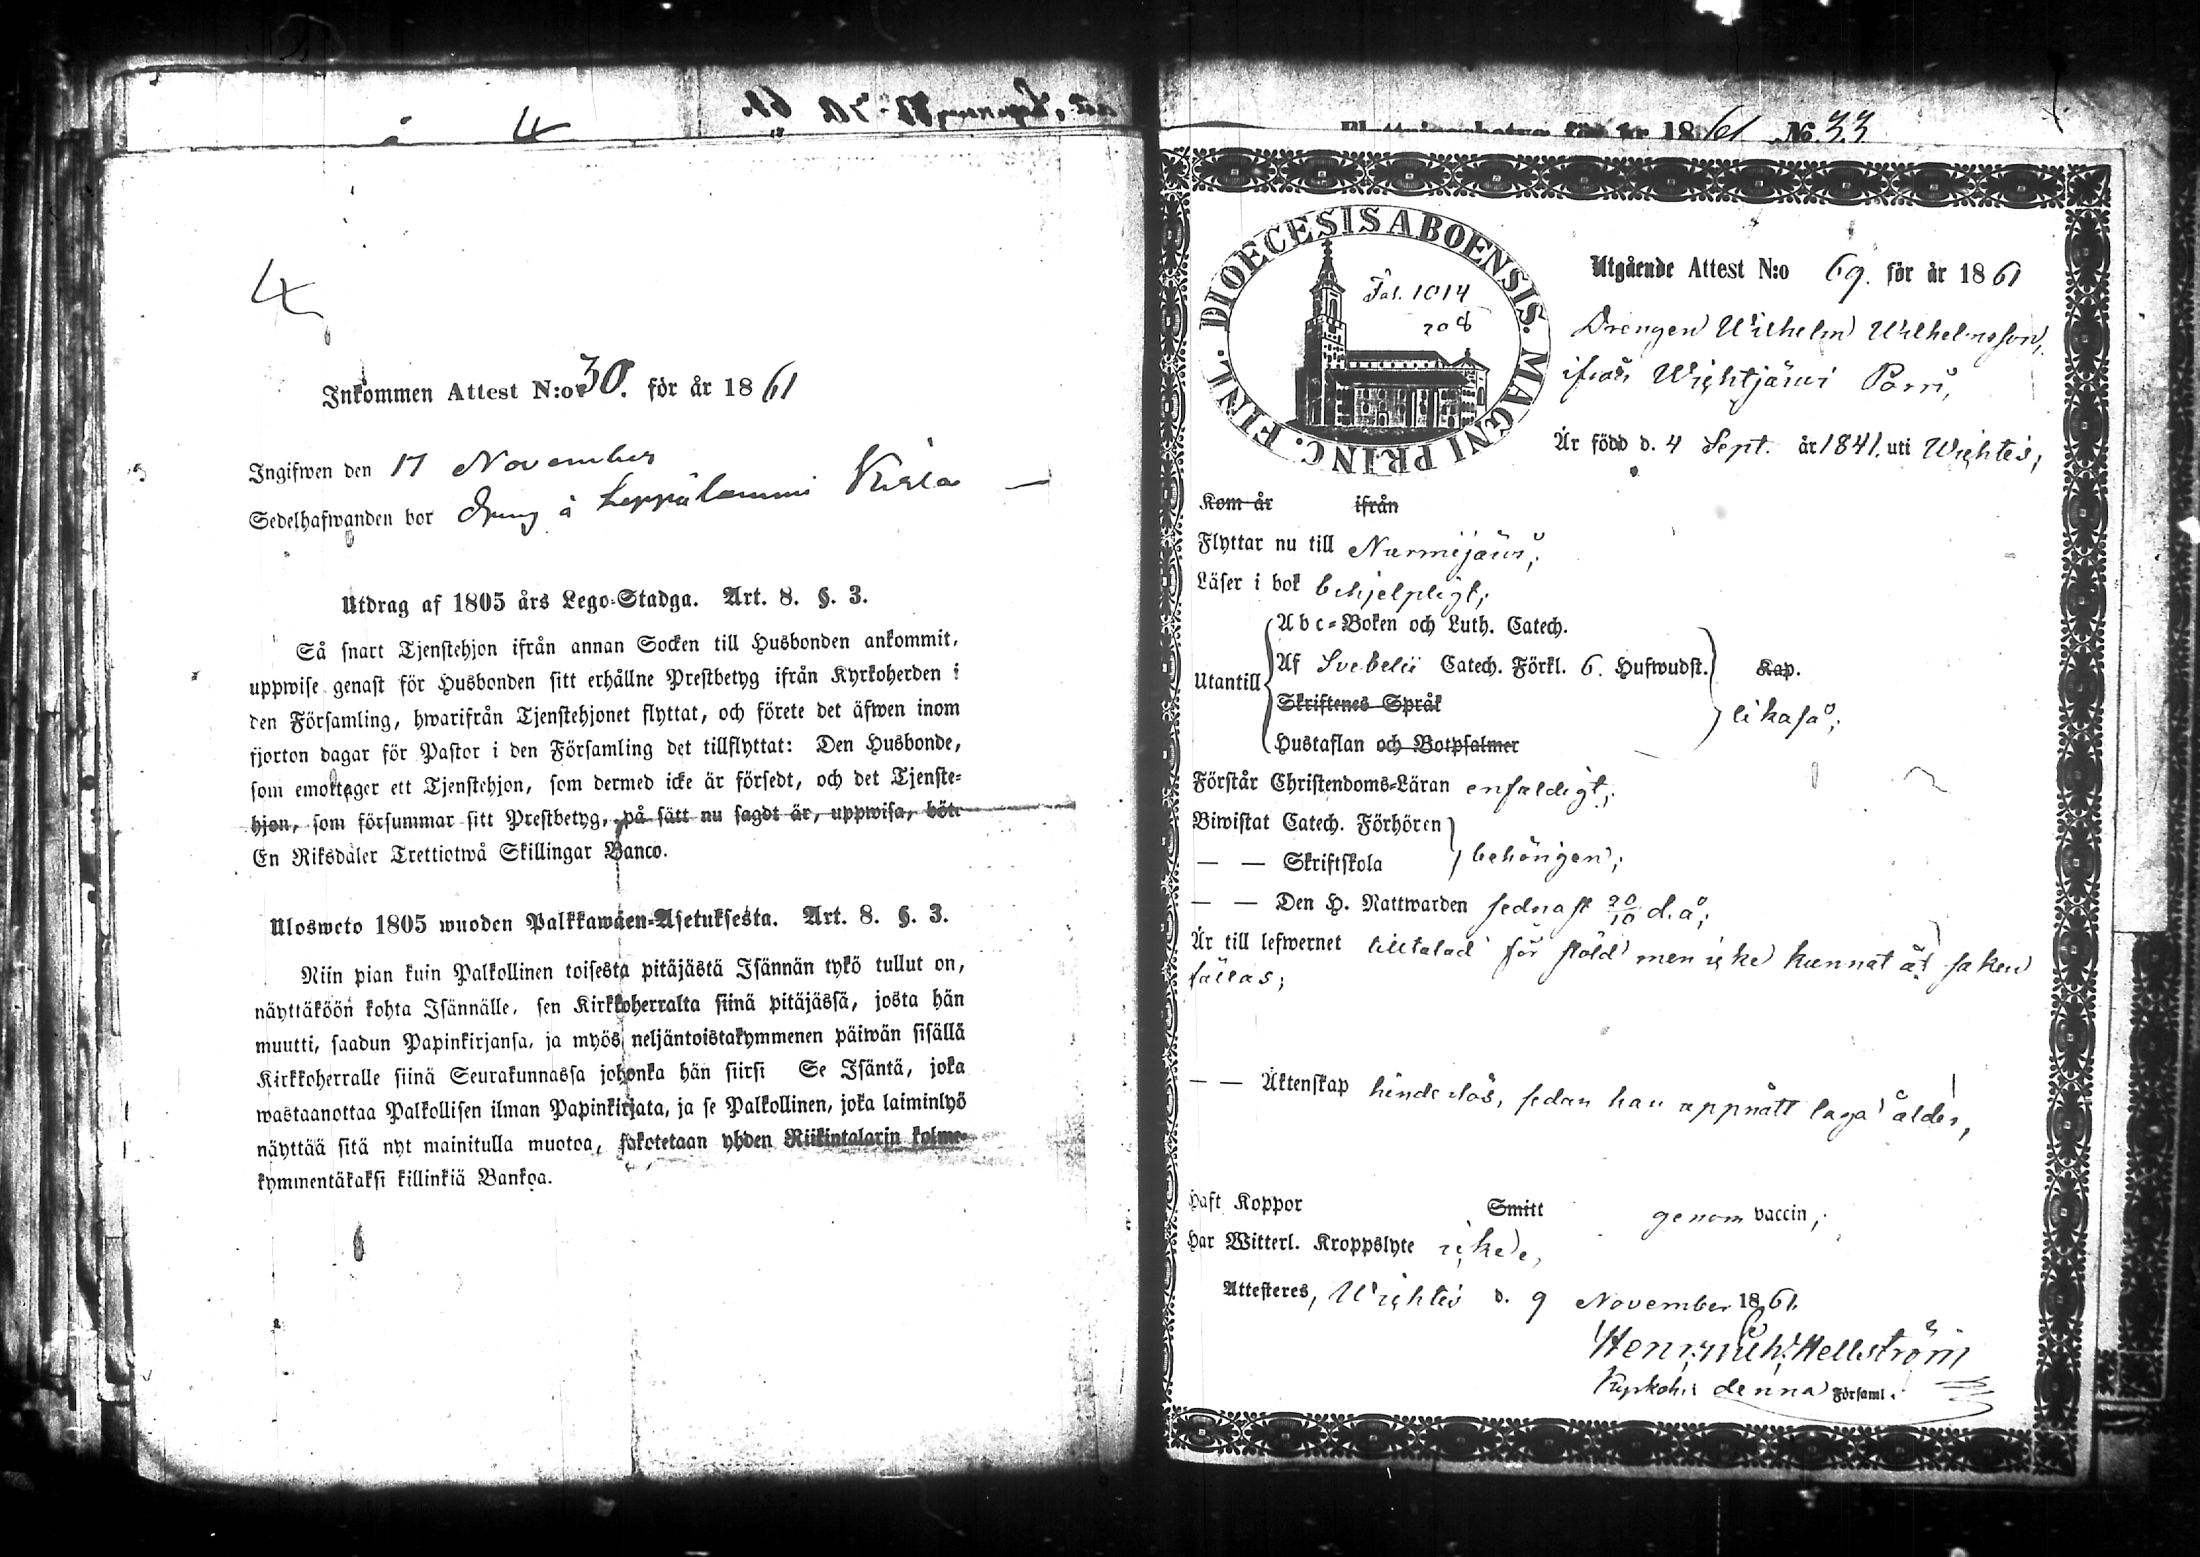 4
4
Inkommen Attest N:o 30. för år 1861
Ingifwen den 17 November
Sedelhafwanden bor Dreng å Leppälammi Kirla
Utdrag af 1805 års Lego-Stadga. Art. 8. §. 3.
Så snart Tjenstehjon ifrån annan Socken till Husbonden ankommit,
uppwise genast för Husbonden sitt erhållne Prestbetyg ifrån Kyrkoherden i
den Församling, hwarifrån Tjenstehjonet flyttat, och förete det äfwen inom
fjorton dagar för Pastor i den Församling det tillflyttat: Den Husbonde,
som emottager ett Tjenstehjon, som dermed icke är försedt, och det Tjenste-
hjon, som försummar sitt Prestbetyg, på sätt nu sagdt är, uppwisa, böte
En Riksdaler Trettiotwå Skillingar Banco.
Ulosweto 1805 wuoden Palkkawäen-Asetuksesta. Art. 8. §. 3.
Niin pian kuin Palkollinen toisesta pitäjästä Isännän tykö tullut on,
näyttäköön kohta Isännälle, sen Kirkkoherralta siinä pitäjässä, josta hän
muutti, saadun Papinkirjansa, ja myös neljäntoistakymmenen päiwän sisällä
Kirkkoherralle siinä Seurakunnassa johonka hän siirsi Se Isäntä, joka
wastaanottaa Palkollisen ilman Papinkirjata, ja se Palkollinen, joka laiminlyö
näyttää sitä nyt mainitulla muotoa, sakotetaan yhden Riikintalarin kolme-
kymmentäkaksi killinkiä Bankoa.
Flyttningsbetyg för år 1861 No. 33
DIOECESIS ABOENSIS. MAGNI PRINC. FINL.
Fol. 1014
208
Utgående Attest N:o 69. för år 1861
Drengen Wilhelm Wilhelmsson,
ifrån Wichtjärwi Porri,
Är född d. 4 Sept. år 1841. uti Wichtis,
Kom år ifrån
Flyttar nu till Nurmijärwi;
Läser i bok behjelpligt;
Utantill
Abc-Boken och Luth. Catech.
Af Svebelii Catech. Förkl. 6. Hufwudst. Kap.
Skriftenes Språk
likaså;
Hustaflan och Botpsalmer
Förstår Christendoms-Läran enfaldigt;
Biwistat Catech. Förhören
— — Skriftskola behörigen;
— — Den H. Nattwarden sednast 20/10 d.å;
Är till lefwernet tilltalad för stöld men icke kunnat åt saken
fällas;
— — Äktenskap hinderlös, sedan han uppnått laga ålder,
Haft Koppor Smitt genom vaccin;
Har Witterl. Kroppslyte icke,
Attesteres, Wichtis d. 9 November 1861.
Hellström
Kyrkoh. i denna Församl.